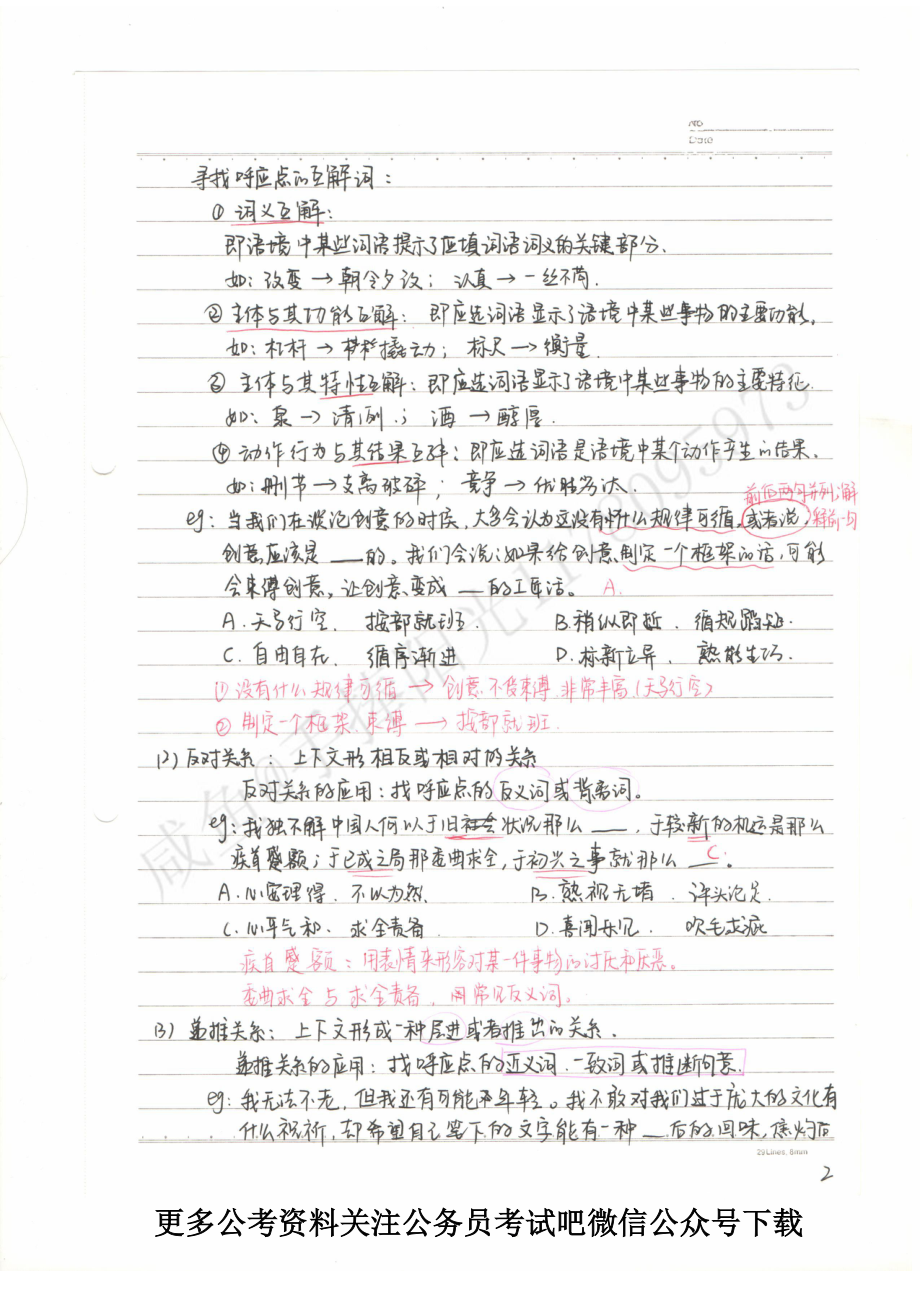 No
Date
寻找呼应点的互解词：
① 词义互解：
即语境中某些词语提示了应填词语词义的关键部分.
如：改变→朝令夕改；认真→一丝不苟.
② 主体与其功能互解：即应选词语显示了语境中某些事物的主要功能.
如：杠杆→撬动；标尺→衡量.
③ 主体与其特性互解：即应选词语显示了语境中某些事物的主要特征.
如：泉→清冽；酒→醇厚.
④ 动作行为与其结果互解：即应选词语是语境中某个动作产生的结果.
如：删节→支离破碎；竞争→优胜劣汰.
前后两句并列，解释前一句
eg：当我们在谈论创意的时候，大多会认为这没有什么规律可循。或者说，
创意应该是 ___ 的。我们会说：如果给创意制定一个框架的话，可能
会束缚创意，让创意变成 ___ 的工匠活。 A.
A.天马行空. 按部就班. B.稍纵即逝. 循规蹈矩.
C.自由自在. 循序渐进 D.标新立异. 熟能生巧.
①没有什么规律可循→创意不受束缚.非常丰富.(天马行空)
②制定一个框架.束缚→按部就班.
(2) 反对关系：上下文形相反或相对的关系
反对关系的应用：找呼应点的反义词或背离词。
eg：我独不解中国人何以于旧社会状况那么 ___ ，于较新的机运是那么
疾首蹙额；于已成之局那委曲求全，于初兴之事就那么 C 。
A.心安理得. 不以为然 B.熟视无堵. 评头论足.
C.心平气和. 求全责备 D.喜闻乐见. 吹毛求疵
疾首蹙额：用表情来形容对某一件事物的讨厌和厌恶。
委曲求全与求全责备，用常见反义词。
(3) 递推关系：上下文形成一种层进或者推出的关系.
递推关系的应用：找呼应点的近义词.一致词或推断句意.
eg：我无法不老，但我还有可能不年轻。我不敢对我们过于庞大的文化有
什么祝祈，却希望自己笔下的文字能有一种 ___ 后的回味，焦灼后
29 Lines, 8mm
2
更多公考资料关注公务员考试吧微信公众号下载
咸鱼@手撵阳光1178095973